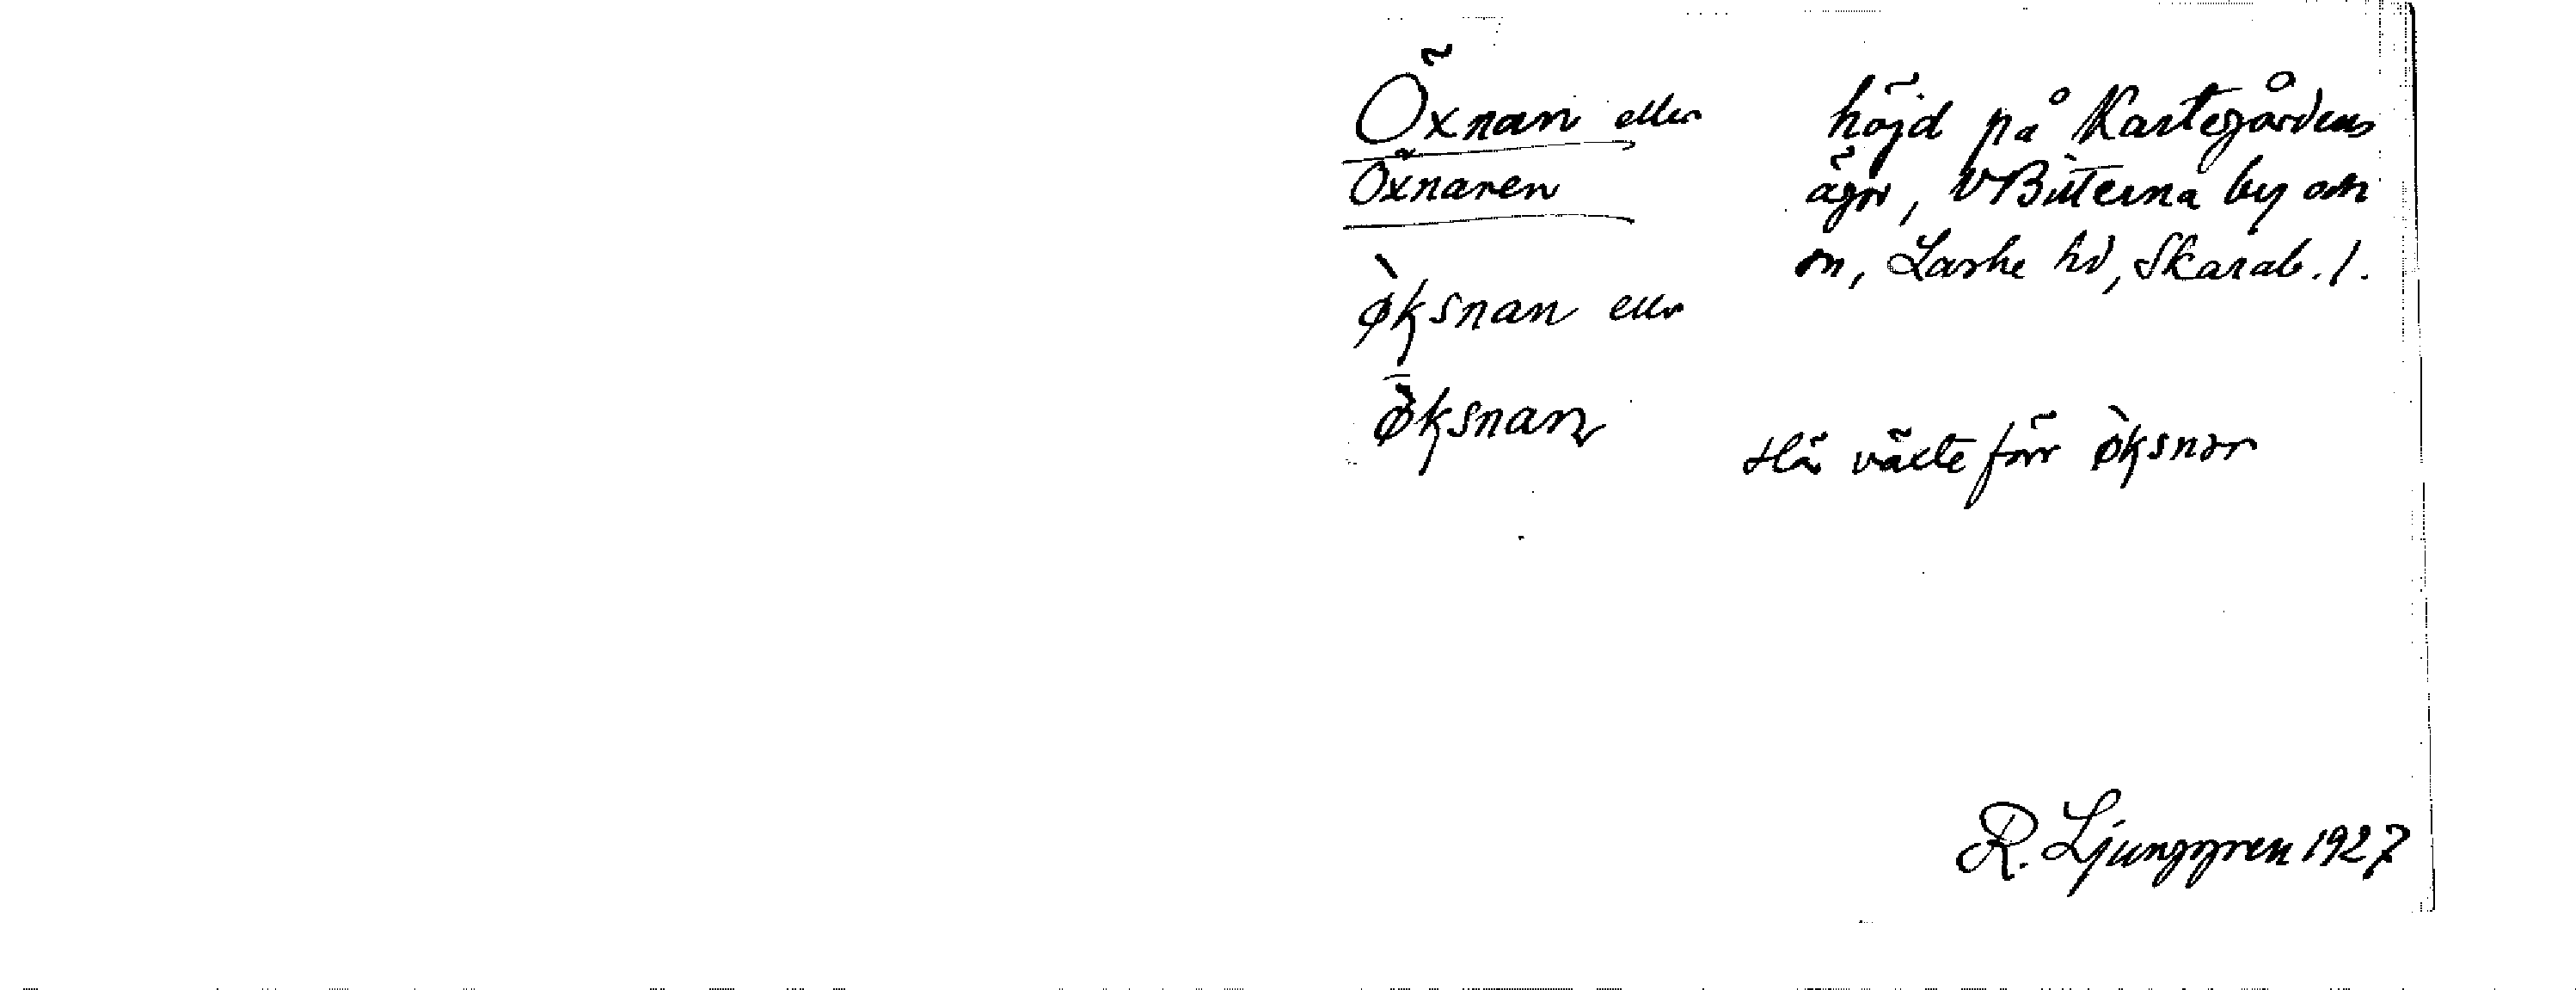 Öxnan eller
Öxnaren
øksnan eller
øksnan
höjd på Kartegårdens
ägor, V Bitterna by och
sn, Laske hd, Skarab. l.
Här växte förr øksnar
R. Ljunggren 1927